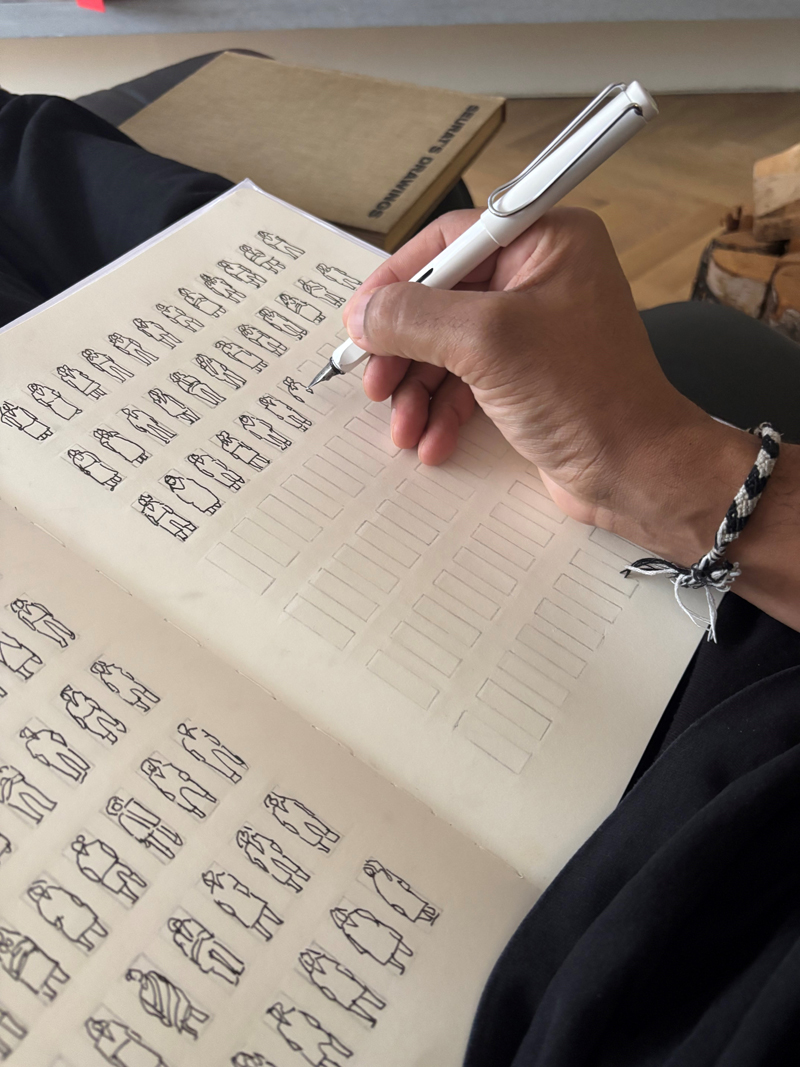 SEURAT'S DRAWINGS